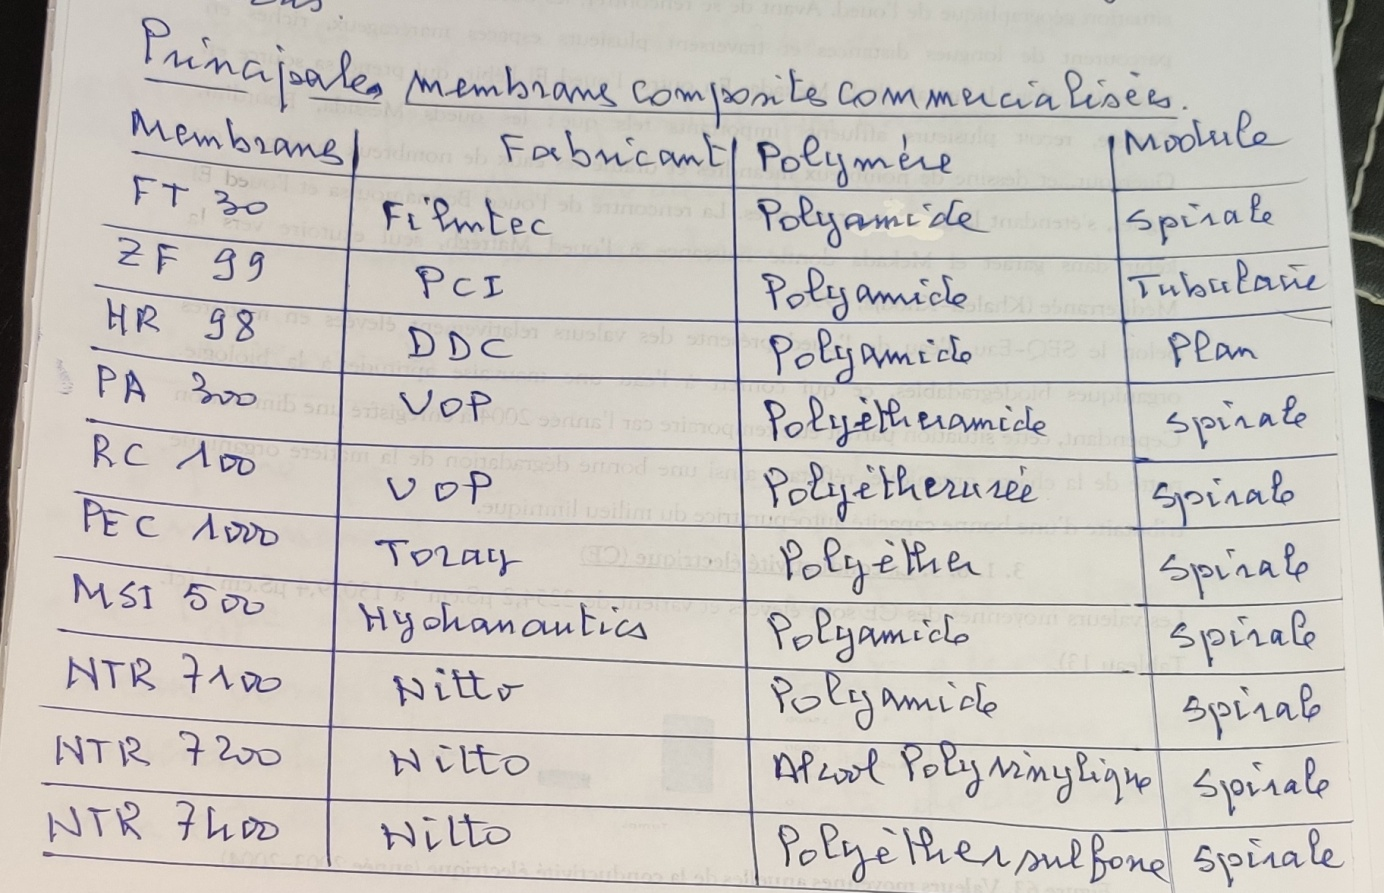 Principales membrans composites commercialisées.
Membrans Fabricant Polymère Module
FT 30 Filmtec Polyamide Spirale
ZF 99 PCI Polyamide Tubulaire
HR 98 DDC Polyamide Plan
PA 300 UOP Polyétheramide Spirale
RC 100 UOP Polyétherurée Spirale
PEC 1000 Toray Polyéther Spirale
MSI 500 Hydranautics Polyamide Spirale
NTR 7100 Nitto Polyamide Spirale
NTR 7200 Nitto Alcool Polyvinylique Spirale
NTR 7400 Nitto Polyéthersulfone Spirale